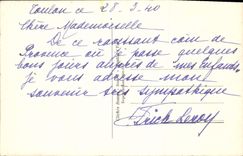 Toulon ce 28.3.40
Chère Mademoiselle
De ce ravissant coin de
Provence où je passe quelques
bons jours auprès de mes enfants
je vous adresse mon
souvenir très sympathique